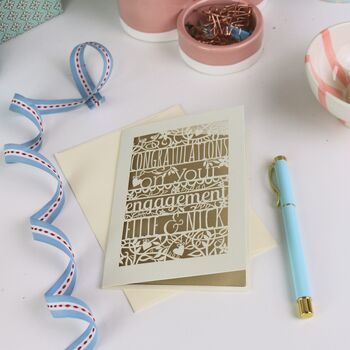 CONGRATULATIONS
on your
engagement
ELLIE & NICK